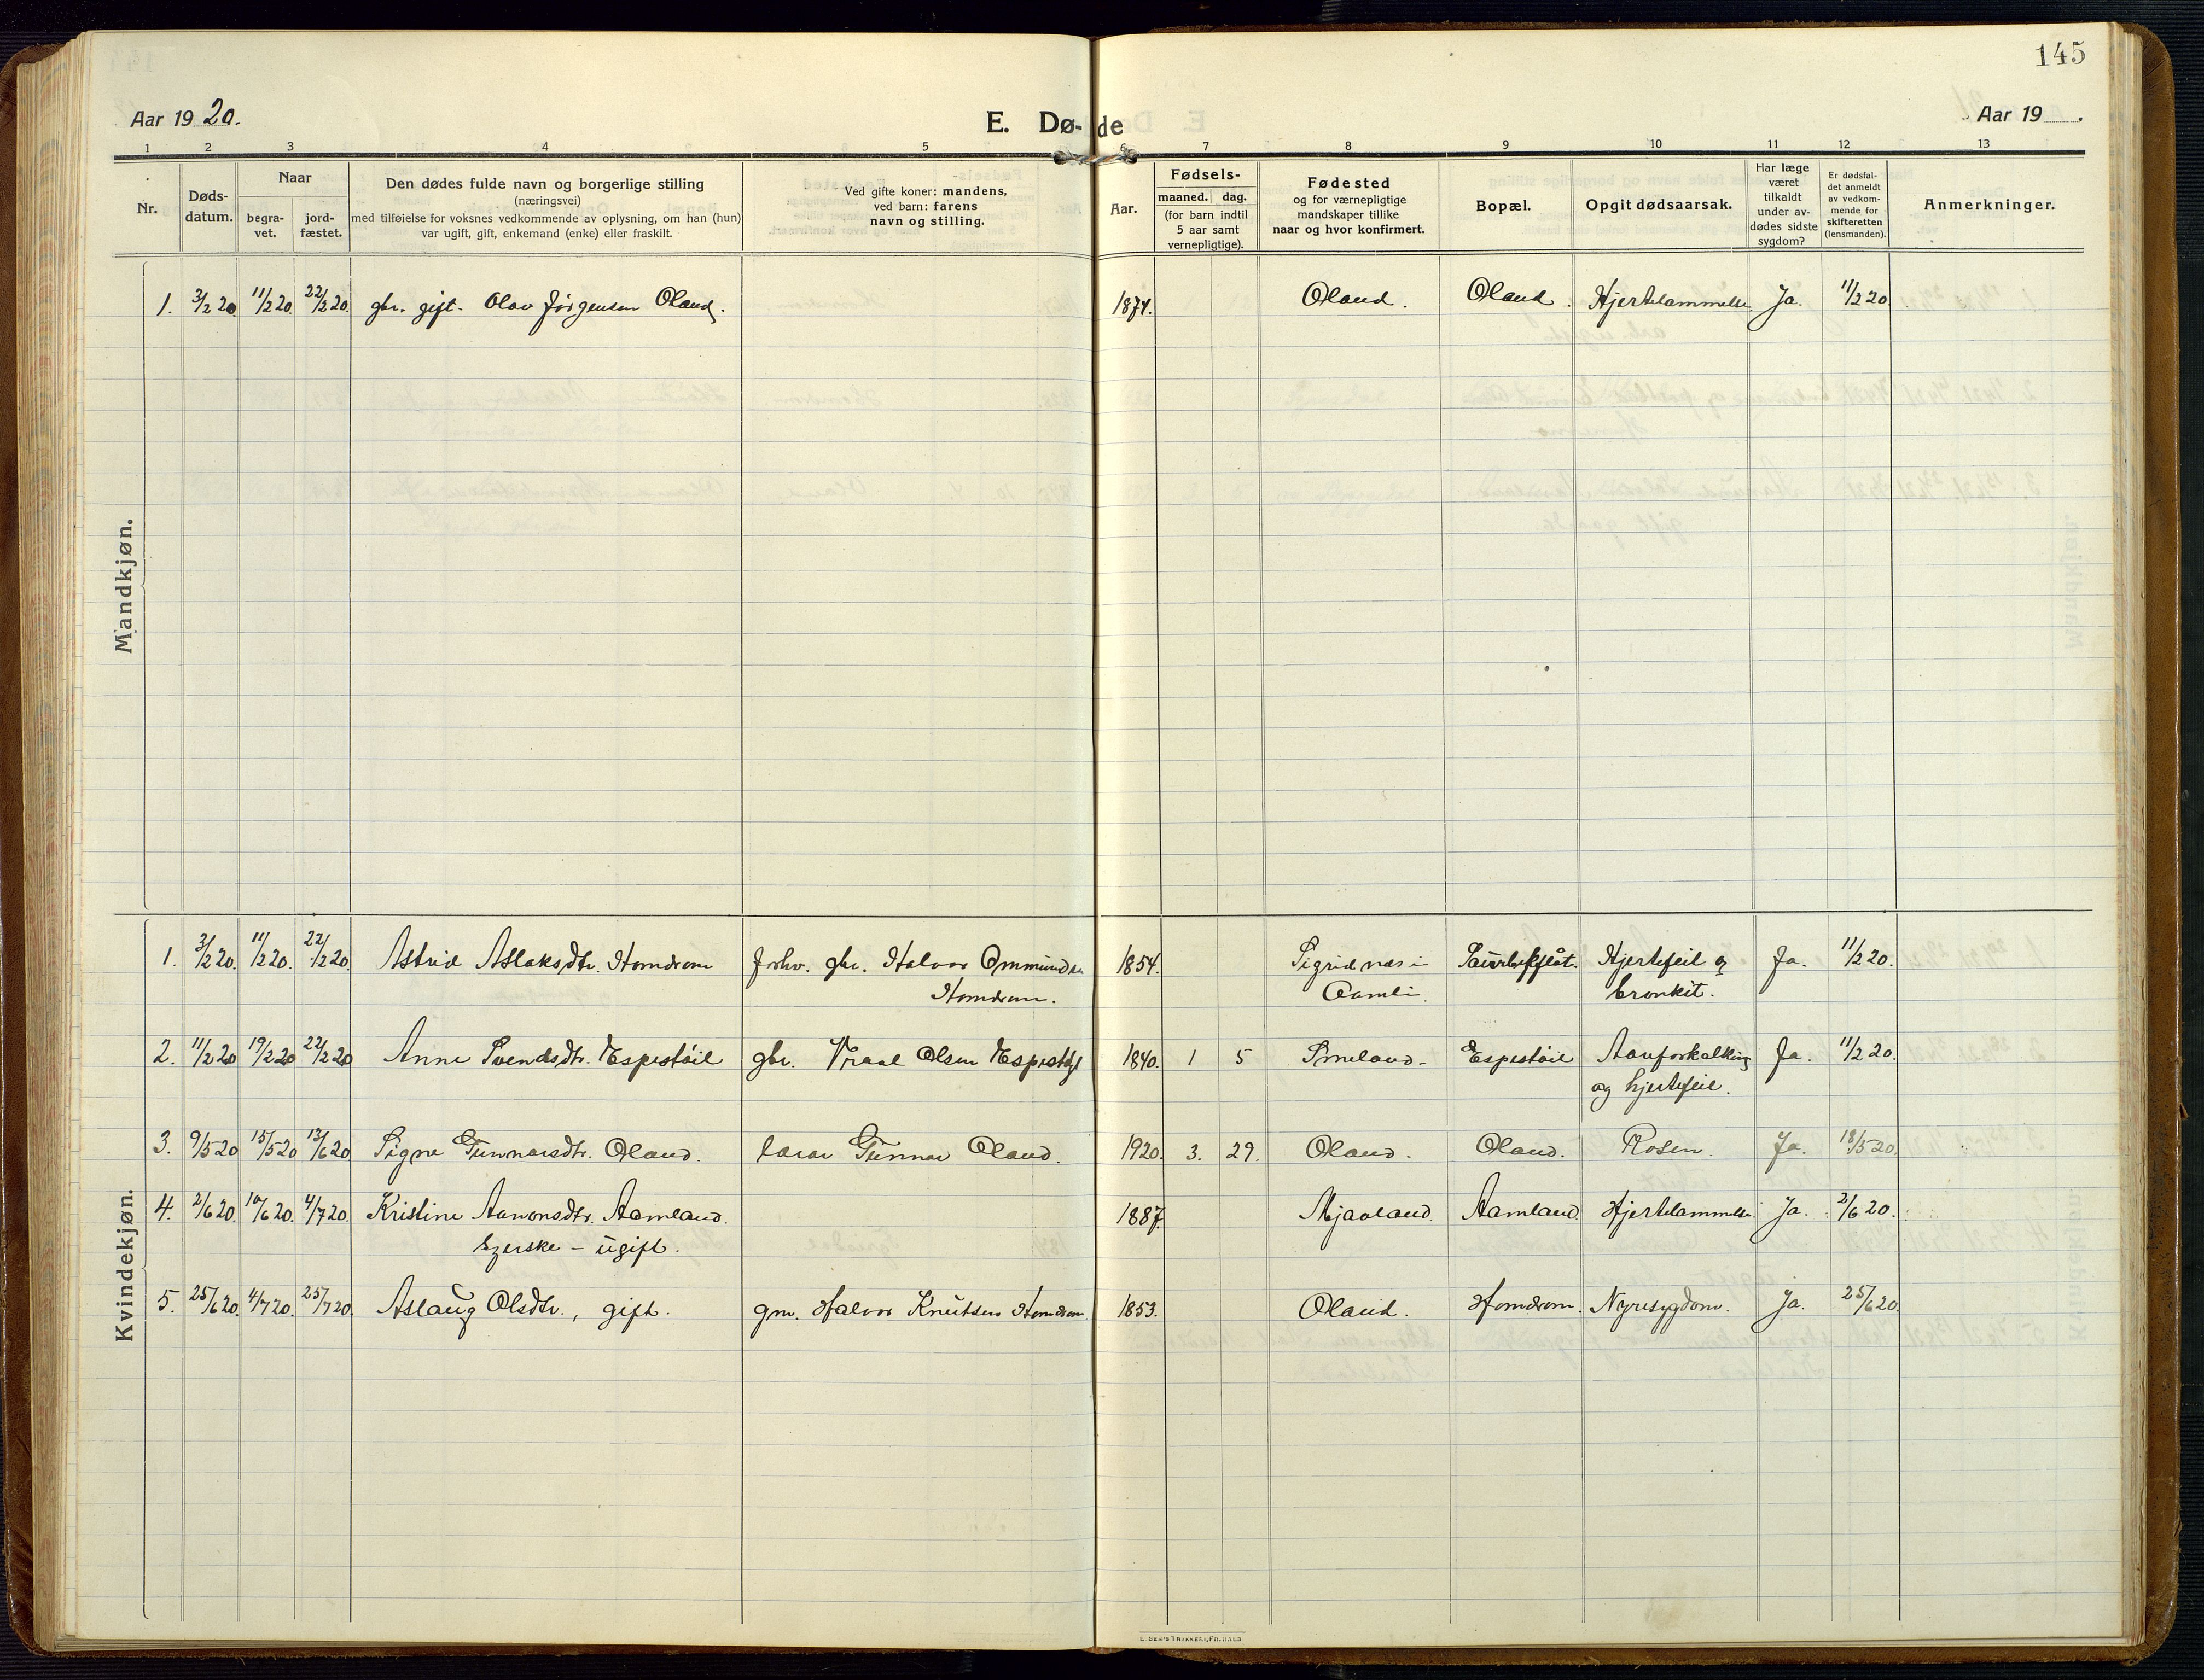 145
Aar 1920.
E. Dø-de
Aar 19 .
1 2 3 4 5 6 7 8 9 10 11 12 13
Nr.
Døds-
datum.
Naar
begra-
vet.
jord-
fæstet.
Den dødes fulde navn og borgerlige stilling
(næringsvei)
med tilføielse for voksnes vedkommende av oplysning, om han (hun)
var ugift, gift, enkemand (enke) eller fraskilt.
Ved gifte koner: mandens,
ved barn: farens
navn og stilling.
Aar.
Fødsels-
maaned. dag.
(for barn indtil
5 aar samt
vernepligtige).
Fødested
og for værnepligtige
mandskaper tillike
naar og hvor konfirmert.
Bopæl.
Opgit dødsaarsak.
Har læge
været
tilkaldt
under av-
dødes sidste
sygdom?
Er dødsfal-
det anmeldt
av vedkom-
mende for
skifteretten
(lensmanden).
Anmerkninger.
Mandkjøn.
1. 3/2 20 11/2 20. 22/2 20. gbr. gift. Olav Jörgensen Oland. 1874. Oland. Oland. Hjertelammelse Ja. 11/2 20.
Kvindekjøn.
1. 3/2 20. 11/2 20. 22/2 20. Astrid Aslaksdtr. Homdrom forhv. gbr. Halvor Ommundsen 1854. Sigridnæs i Hjertefeil og Ja. 11/2 20.
Homdrom. Aamli. bronkit.
2. 11/2 20 19/2 20 22/2 20 Anne Svendsdtr. Espestöil gbr. Vraal Olsen Espestöyl 1840. 1 5 Smeland. Espestöil Aareforkalkning Ja. 11/2 20.
og hjertefeil.
3. 9/5 20 15/5 20 13/6 20 Signe Gunnarsdtr. Oland. lærar Gunnar Oland. 1920. 3. 29. Oland. Oland. Rosen. Ja. 18/5 20.
4. 2/6 20. 10/6 20. 4/7 20. Kristine Aanonsdtr. Aamland. 1887. Mjaaland. Aamland. Hjertelammelse. Ja. 2/6 20.
syerske - ugift.
5. 25/6 20. 4/7 20. 25/7 20. Aslaug Olsdtr., gift. gm. Halvor Knutsen Homdrom. 1853. Oland. Homdrom. Nyresygdom. Ja. 25/6 20.